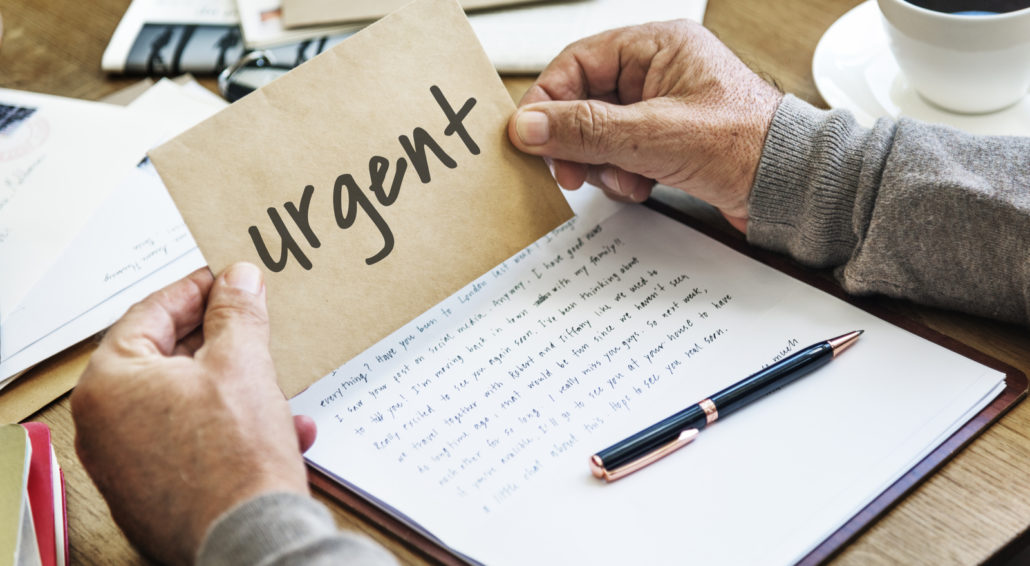 urgent
everything? Have you been to London last week? I
I saw your post on social media. Anyway. I have good news
to tell you! I'm moving back in town with my family!!
Really excited to see you again soon. I've been thinking about
we travel together with Robert and Tiffany like we used to
do longtime ago. that would be fun since we haven't seen
each other for so long. I really miss you guys. so next week,
if you're availible. I'll go to see you at your house to have
a little chat about this. Hope to see you real soon.